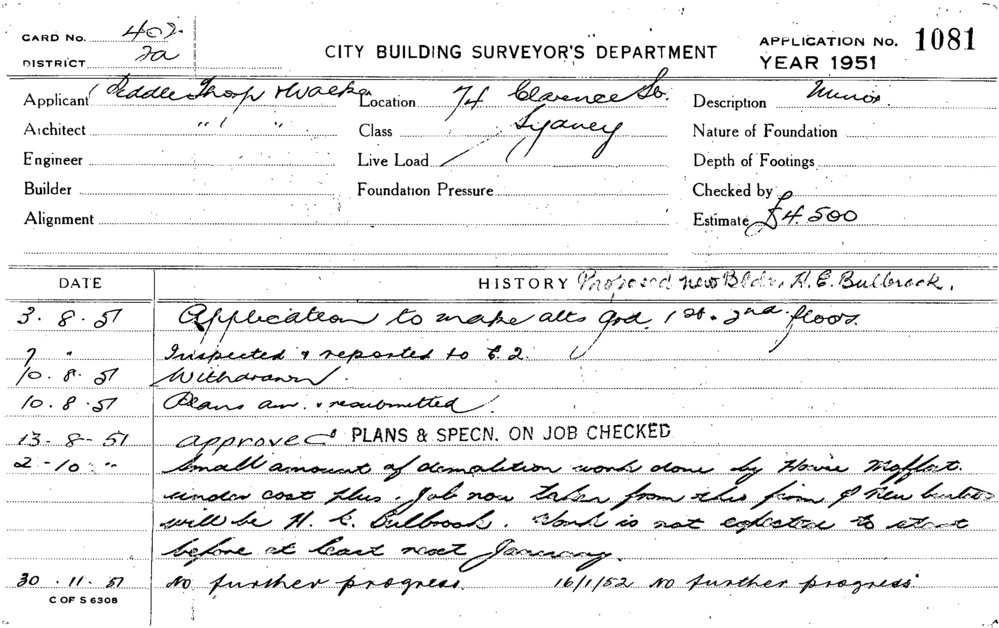 CARD No. 402
DISTRICT 2a
CITY BUILDING SURVEYOR'S DEPARTMENT
APPLICATION No. 1081
YEAR 1951
Applicant Peddle Thorp & Walker
Location 74 Clarence St.
Description Minor
Architect " " "
Class Sydney
Nature of Foundation
Engineer
Live Load
Depth of Footings
Builder
Foundation Pressure
Checked by
Alignment
Estimate £4.500
DATE
HISTORY Proposed new Bldr. H. E. Bulbrook.
3. 8. 51 Application to make alts grd. 1st. 2nd. floors.
7 " Inspected & reported to C. 2.
10. 8. 51 Withdrawn.
10. 8. 51 Plans am. & resubmitted.
13-8-51 approved PLANS & SPECN. ON JOB CHECKED
2-10 " Small amount of demolition work done by Howie Moffat.
under cost plus. Job now taken from this firm & new builder
will be H. E. Bulbrook. Work is not expected to start
before at least next January.
30. 11. 51 No further progress. 16/1/52 No further progress.
C OF S 6308